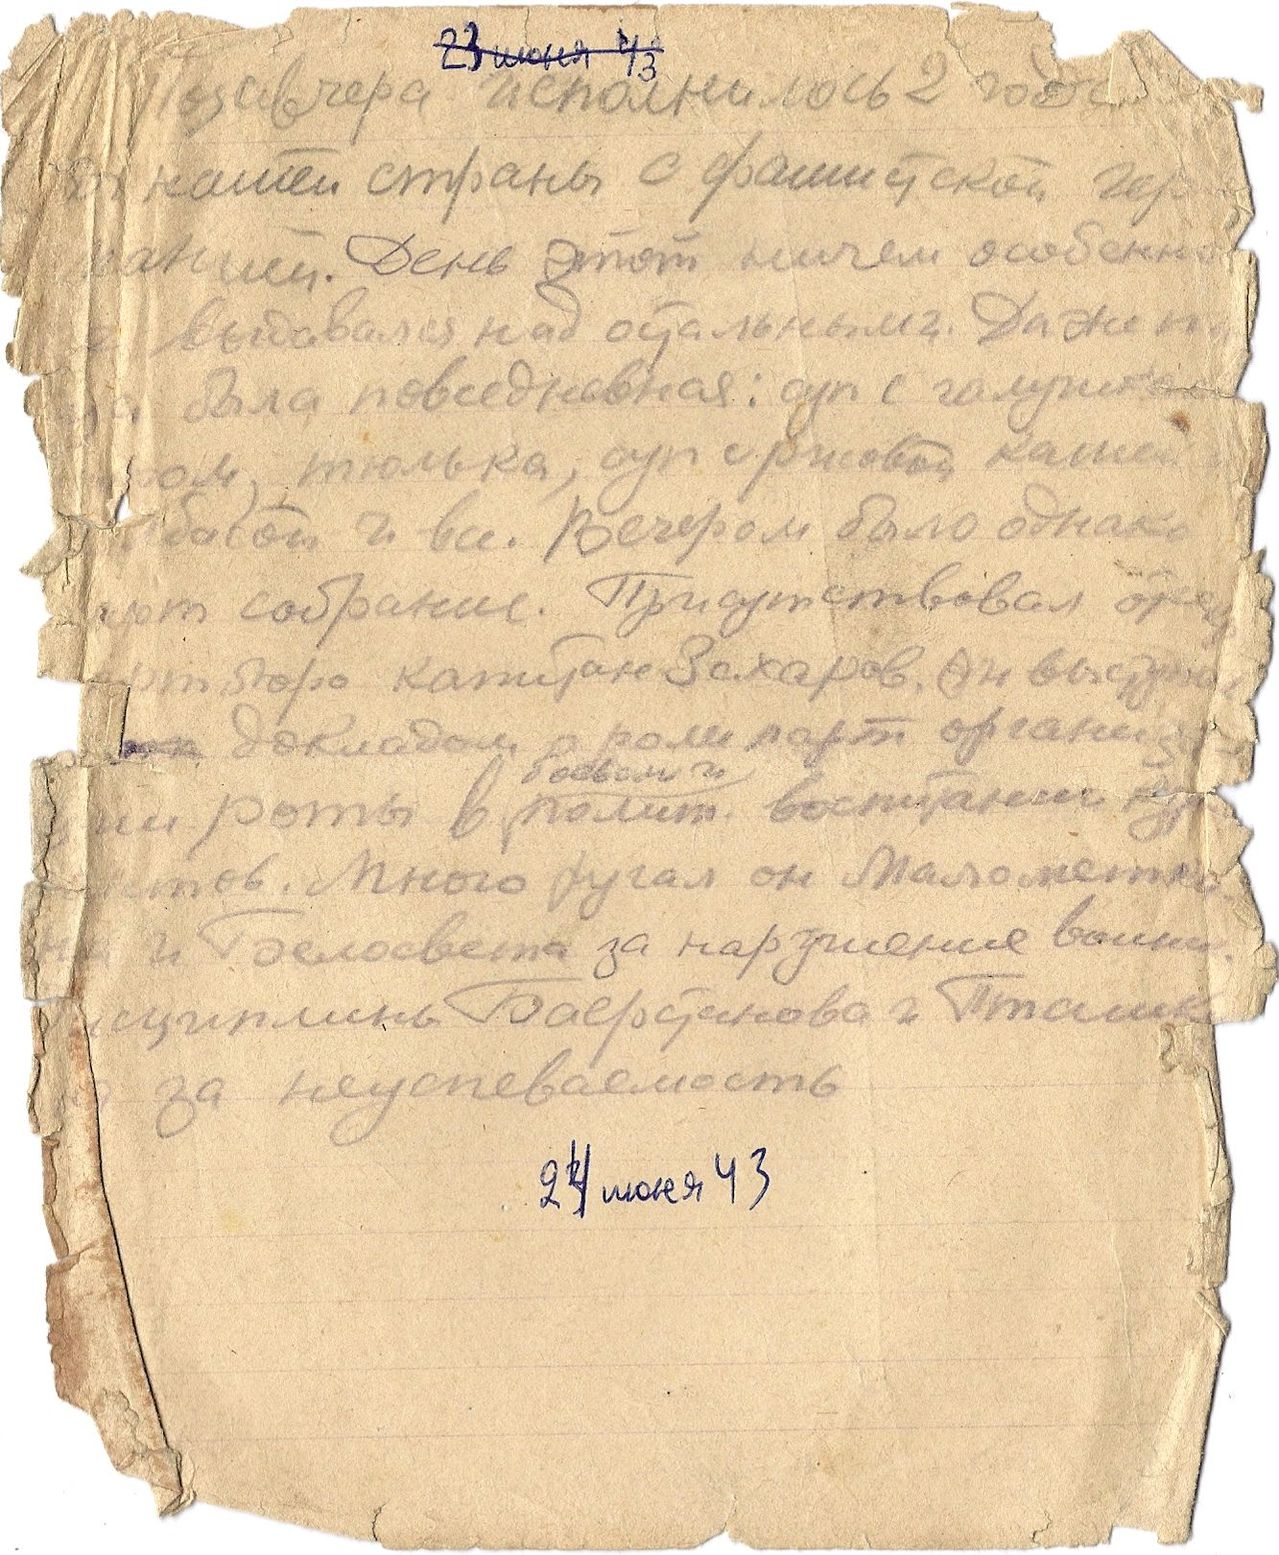 23 июня 43
Позавчера исполнилось 2 года
нашей страны с фашистской гер
манией. День этот ничем особенно
выдавался над остальными. Даже
была повседневная: суп с галушка
тюлька, суп с ржовой кашей
и все. Вечером было однако
парт собрание. Присутствовал
партбюро капитан Захаров. Он выступал
докладом о роли парт организа
ции роты в боевом и полит. воспитании кур
сантов. Много ругал он Малометко
на и Белосвета за нарушение воин.
дисциплины Баерстанова и Пташк
за неуспеваемость
24 июня 43